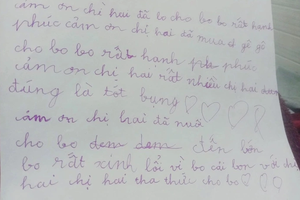 cảm ơn chị hai đã lo cho bo bo rất hạnh
phúc cảm ơn chị hai đã mua gì gì
cho bo bo rất hạnh phúc
cảm ơn chị hai rất nhiều chị hai
đúng là tốt bụng
cảm ơn chị hai đã nuôi
cho bo dem dem đến bốn
bo rất xinh lổi vì bo cãi bơn với chị
hai chị hai tha thức cho bo